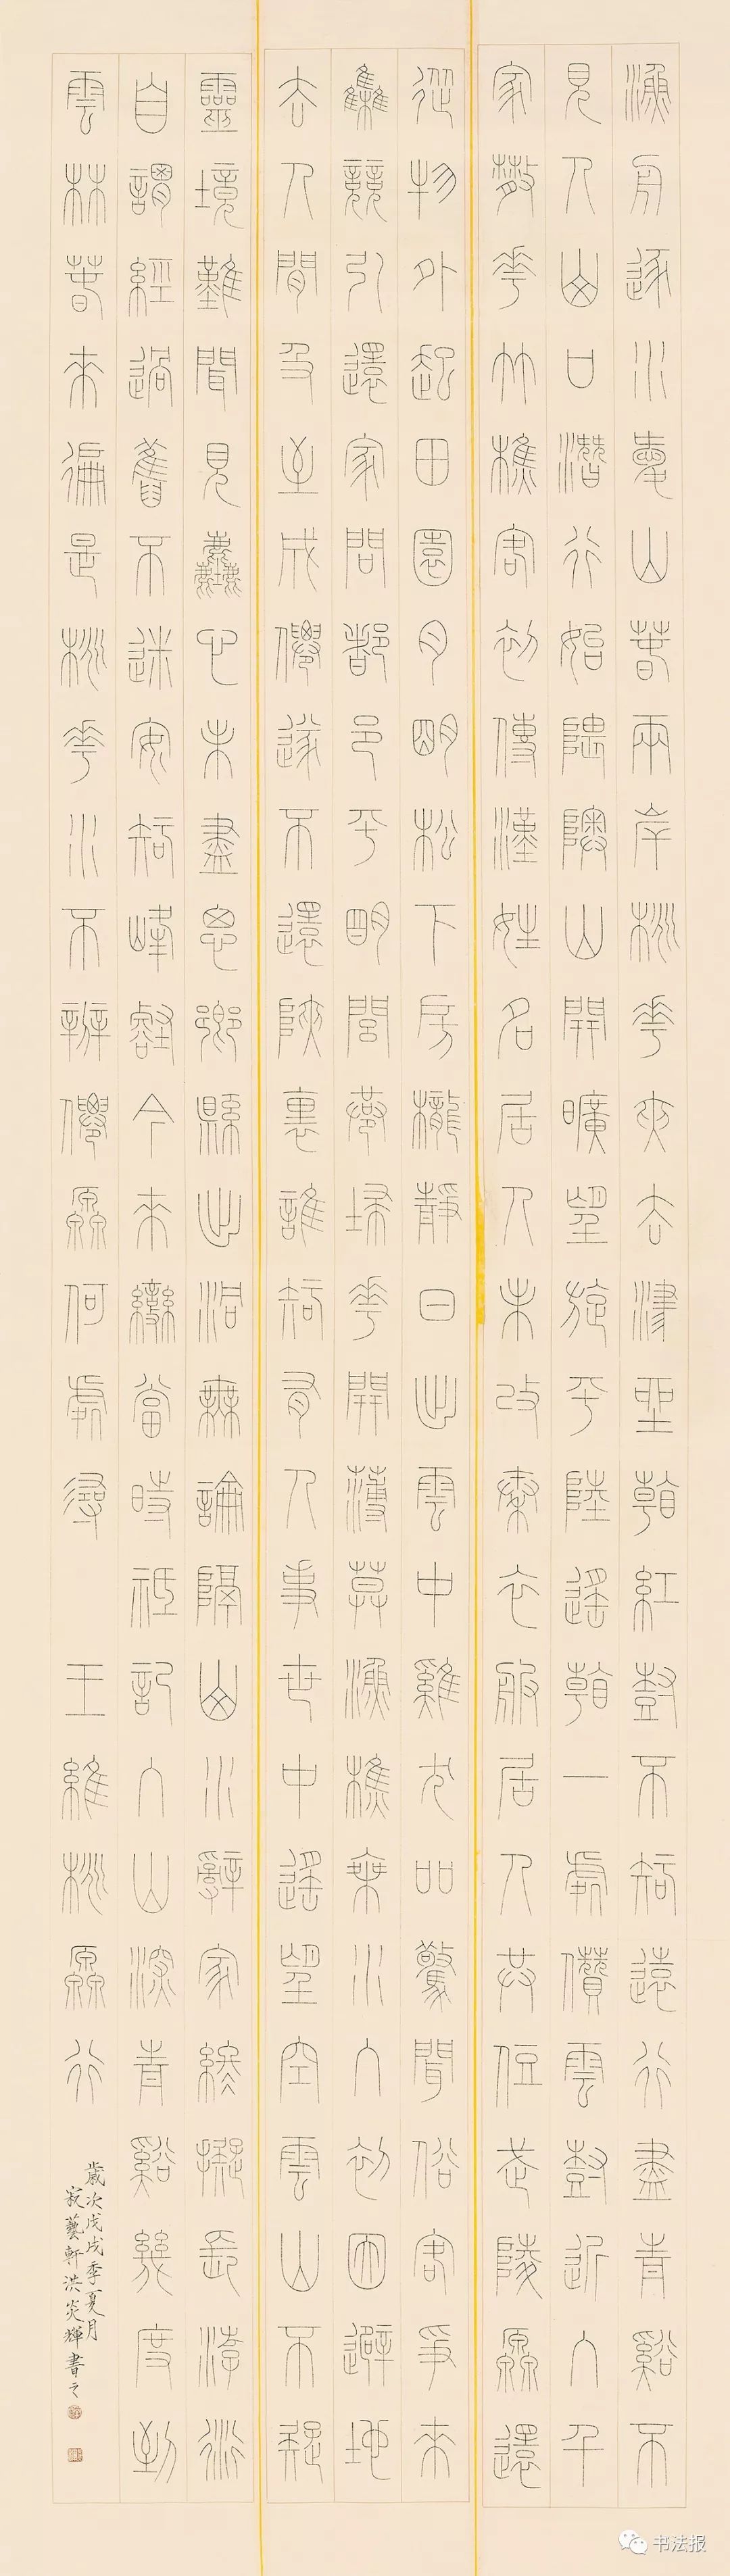 漁舟逐水愛山春兩岸桃華夾去津坐看紅樹不知遠行盡青谿不
見人山口潛行始隈隩山開曠望旋平陸遙看一處攢雲樹近入千
家散華竹樵客初傳漢姓名居人未改秦衣服居人共住武陵源還
從物外起田園月明松下房櫳靜日出雲中雞犬吅驚聞俗客爭來
集競引還家問都邑平明閭巷埽華開薄莫漁樵乘水入初因避地
去人間及至成僊遂不還陝裏誰知有人事世中遙望空雲山不疑
靈境難聞見塵心未盡思鄉縣出洞無論隔山水辭家終擬長游衍
自謂經過舊不迷安知峰壑今來變當時祇記入山深青谿幾度到
雲林春來徧是桃華水不辨僊源何處尋 王維桃源行
歲次戊戌季夏月
寂藝軒洪炎輝書之
书法报